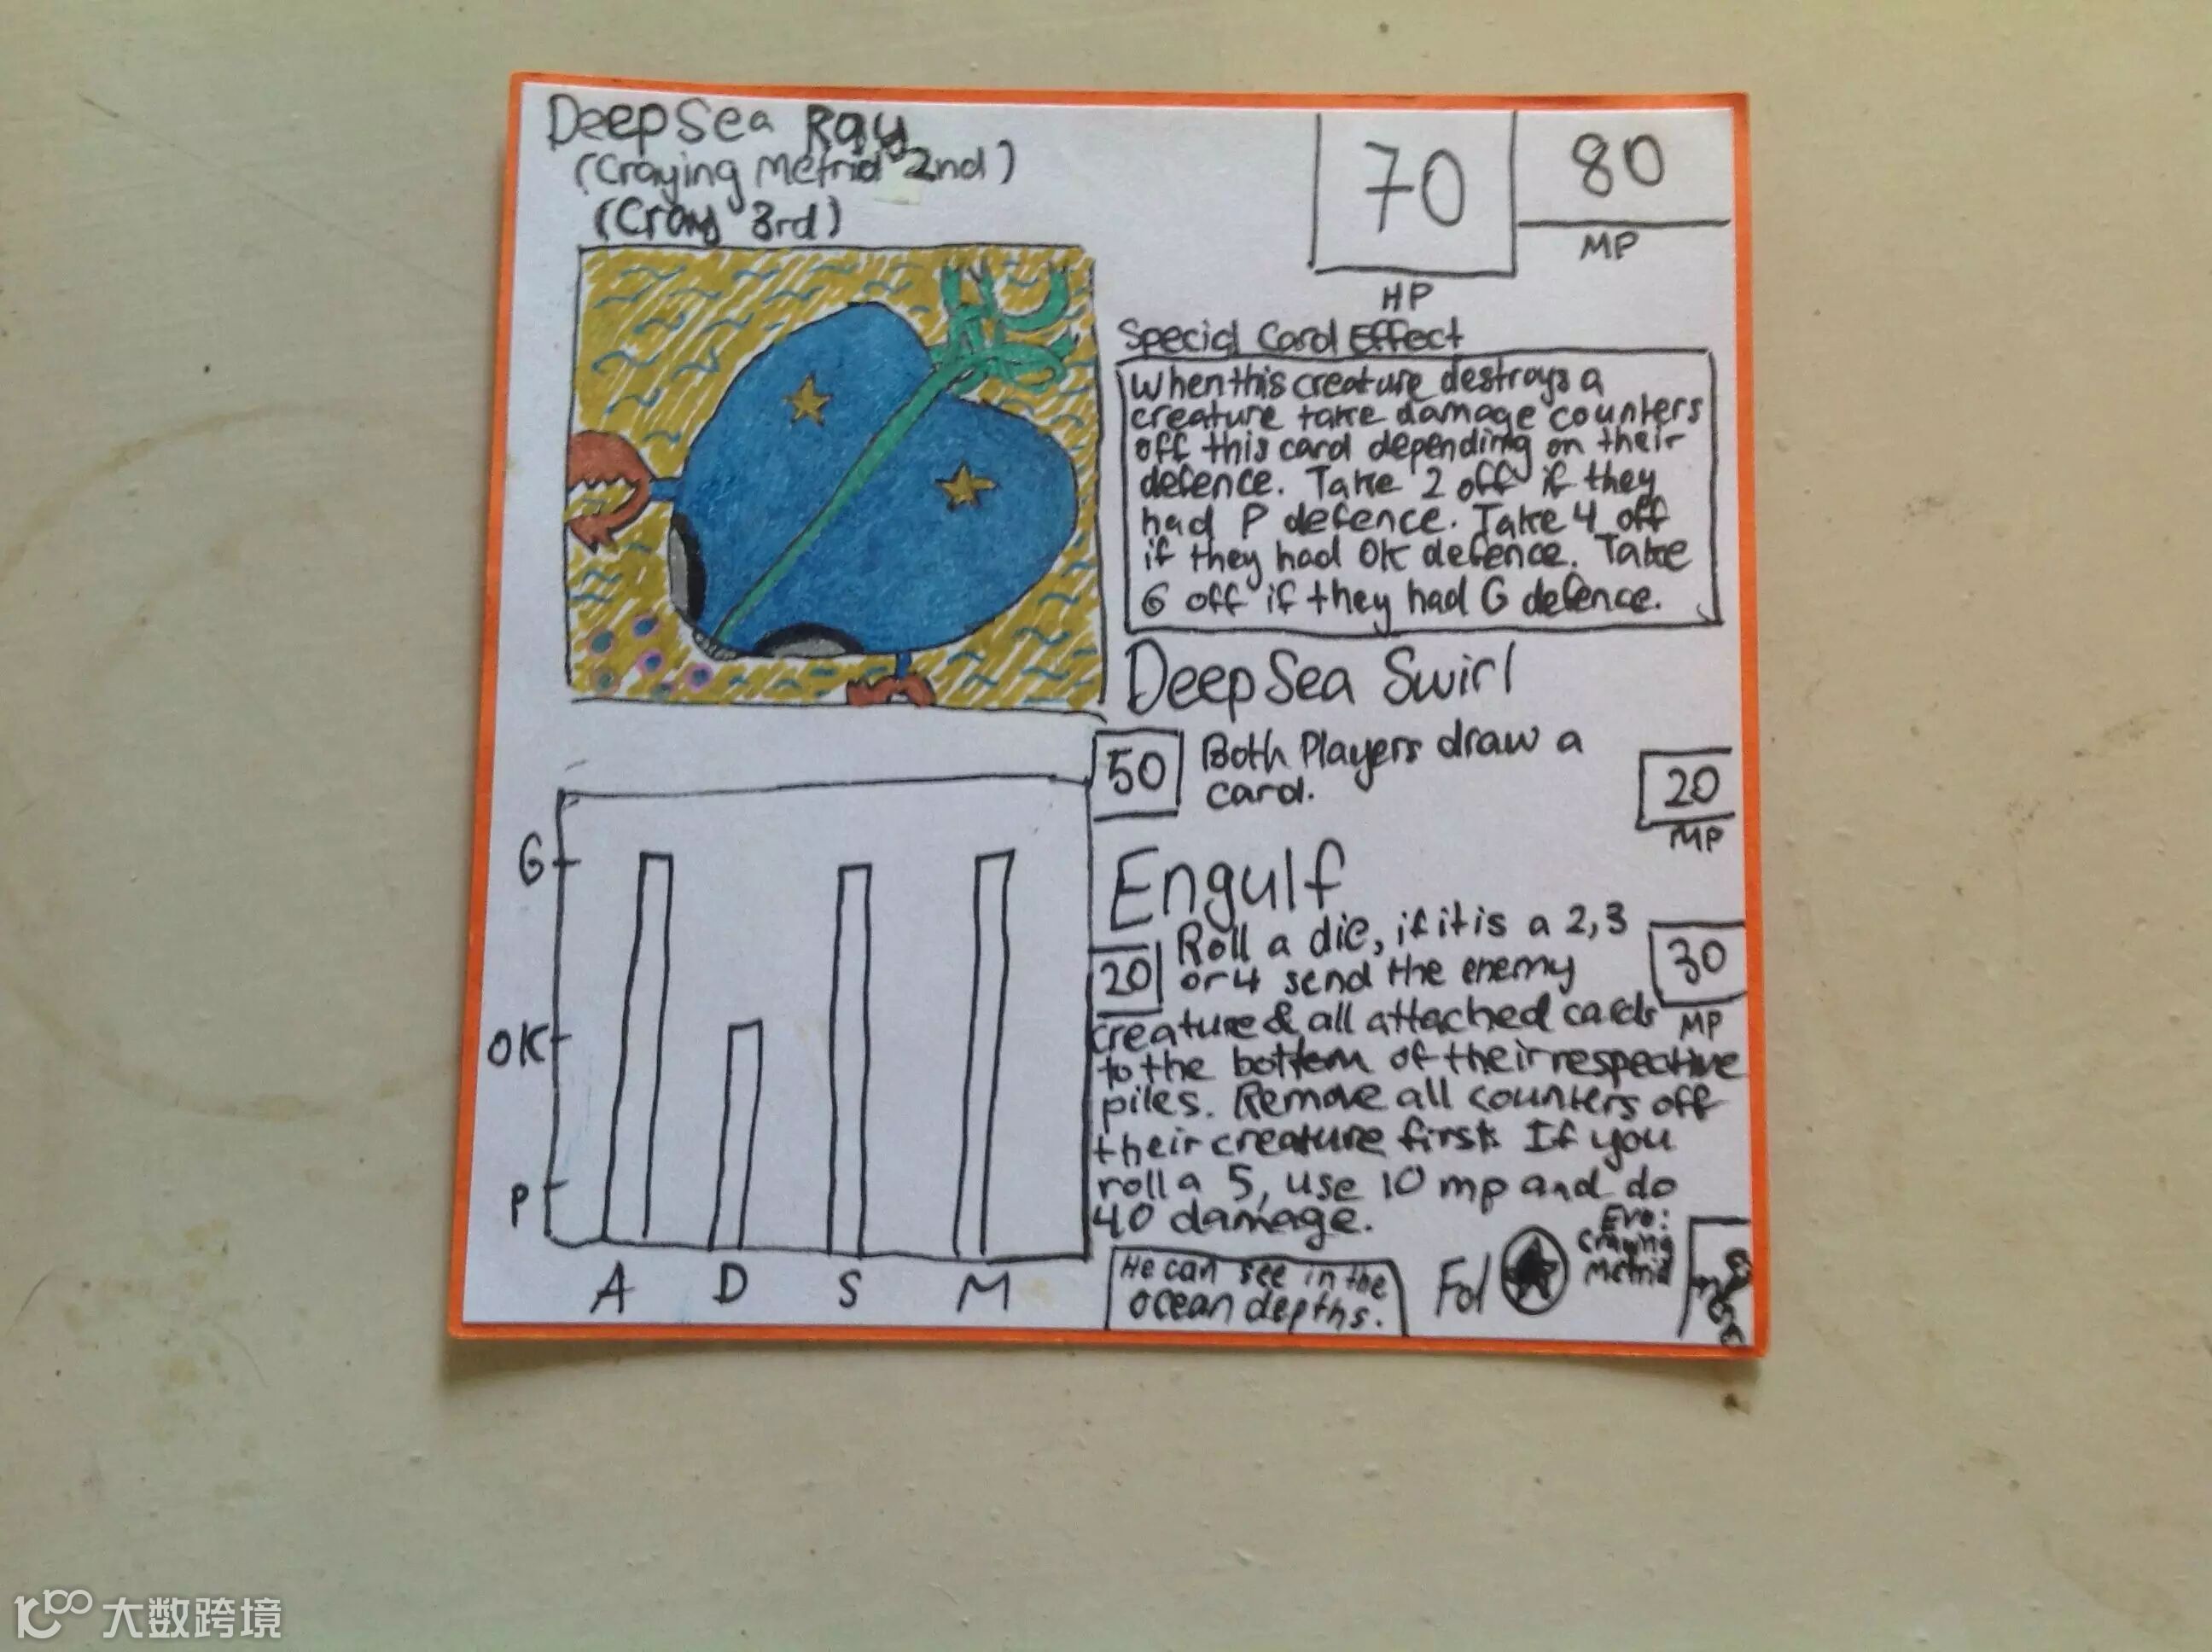 Deep Sea Ray
(Craying Metrid 2nd)
(Cray 3rd)
70
HP
80
MP
Special Card Effect
When this creature destroys a
creature take damage counters
off this card depending on their
defence. Take 2 off if they
had P defence. Take 4 off
if they had OK defence. Take
6 off if they had G defence.
Deep Sea Swirl
50
Both Players draw a
card.
20
MP
Engulf
20
Roll a die, if it is a 2, 3
or 4 send the enemy
creature & all attached cards
to the bottom of their respective
piles. Remove all counters off
their creature first. If you
roll a 5, use 10 mp and do
40 damage.
30
MP
G
OK
P
A D S M
He can see in the
ocean depths.
Fol
Evo:
Craying
Metrid
大数跨境